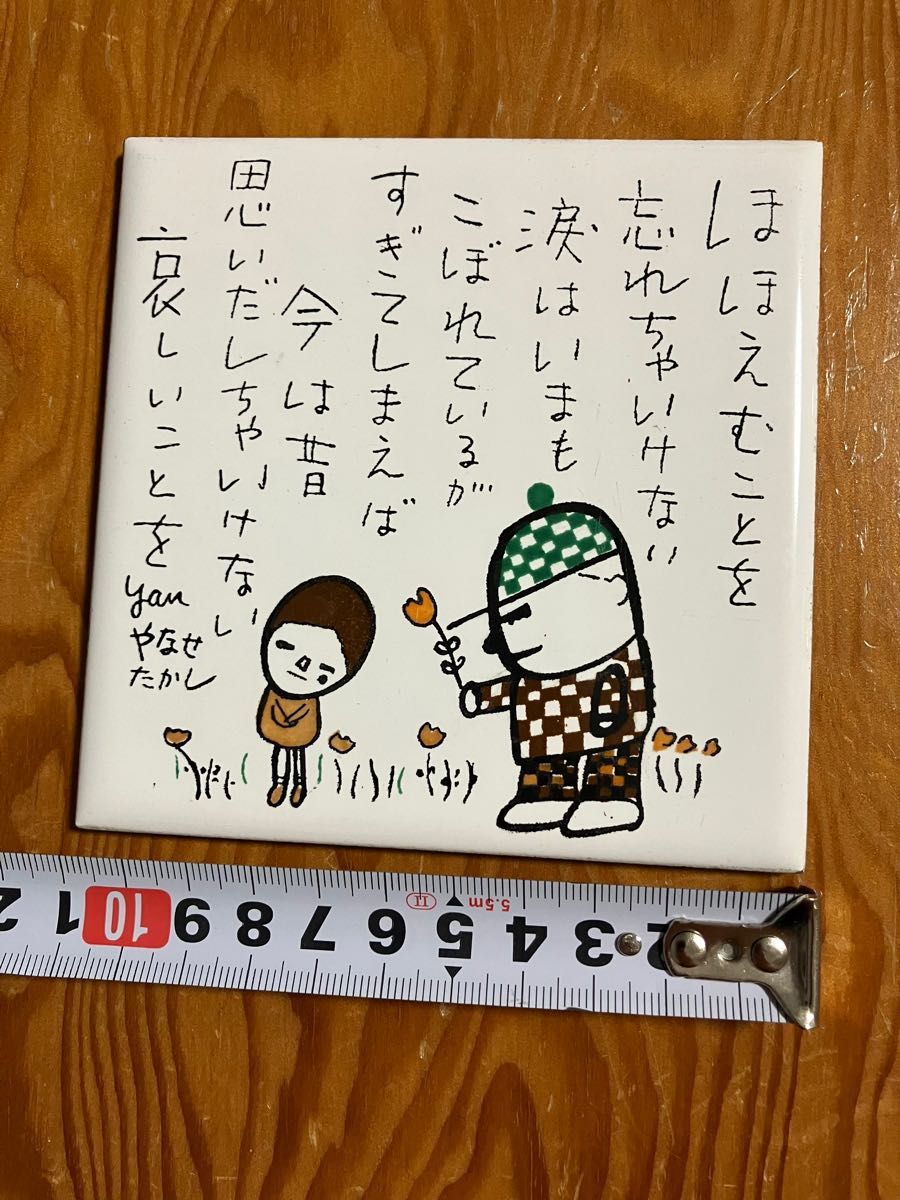 ほほえむことを
忘れちゃいけない
涙はいまも
こぼれているが
すぎてしまえば
今は昔
思いだしちゃいけない
哀しいことを
yan
やなせ
たかし
5.5m
2 3 4 5 6 7 8 9 10 1 2